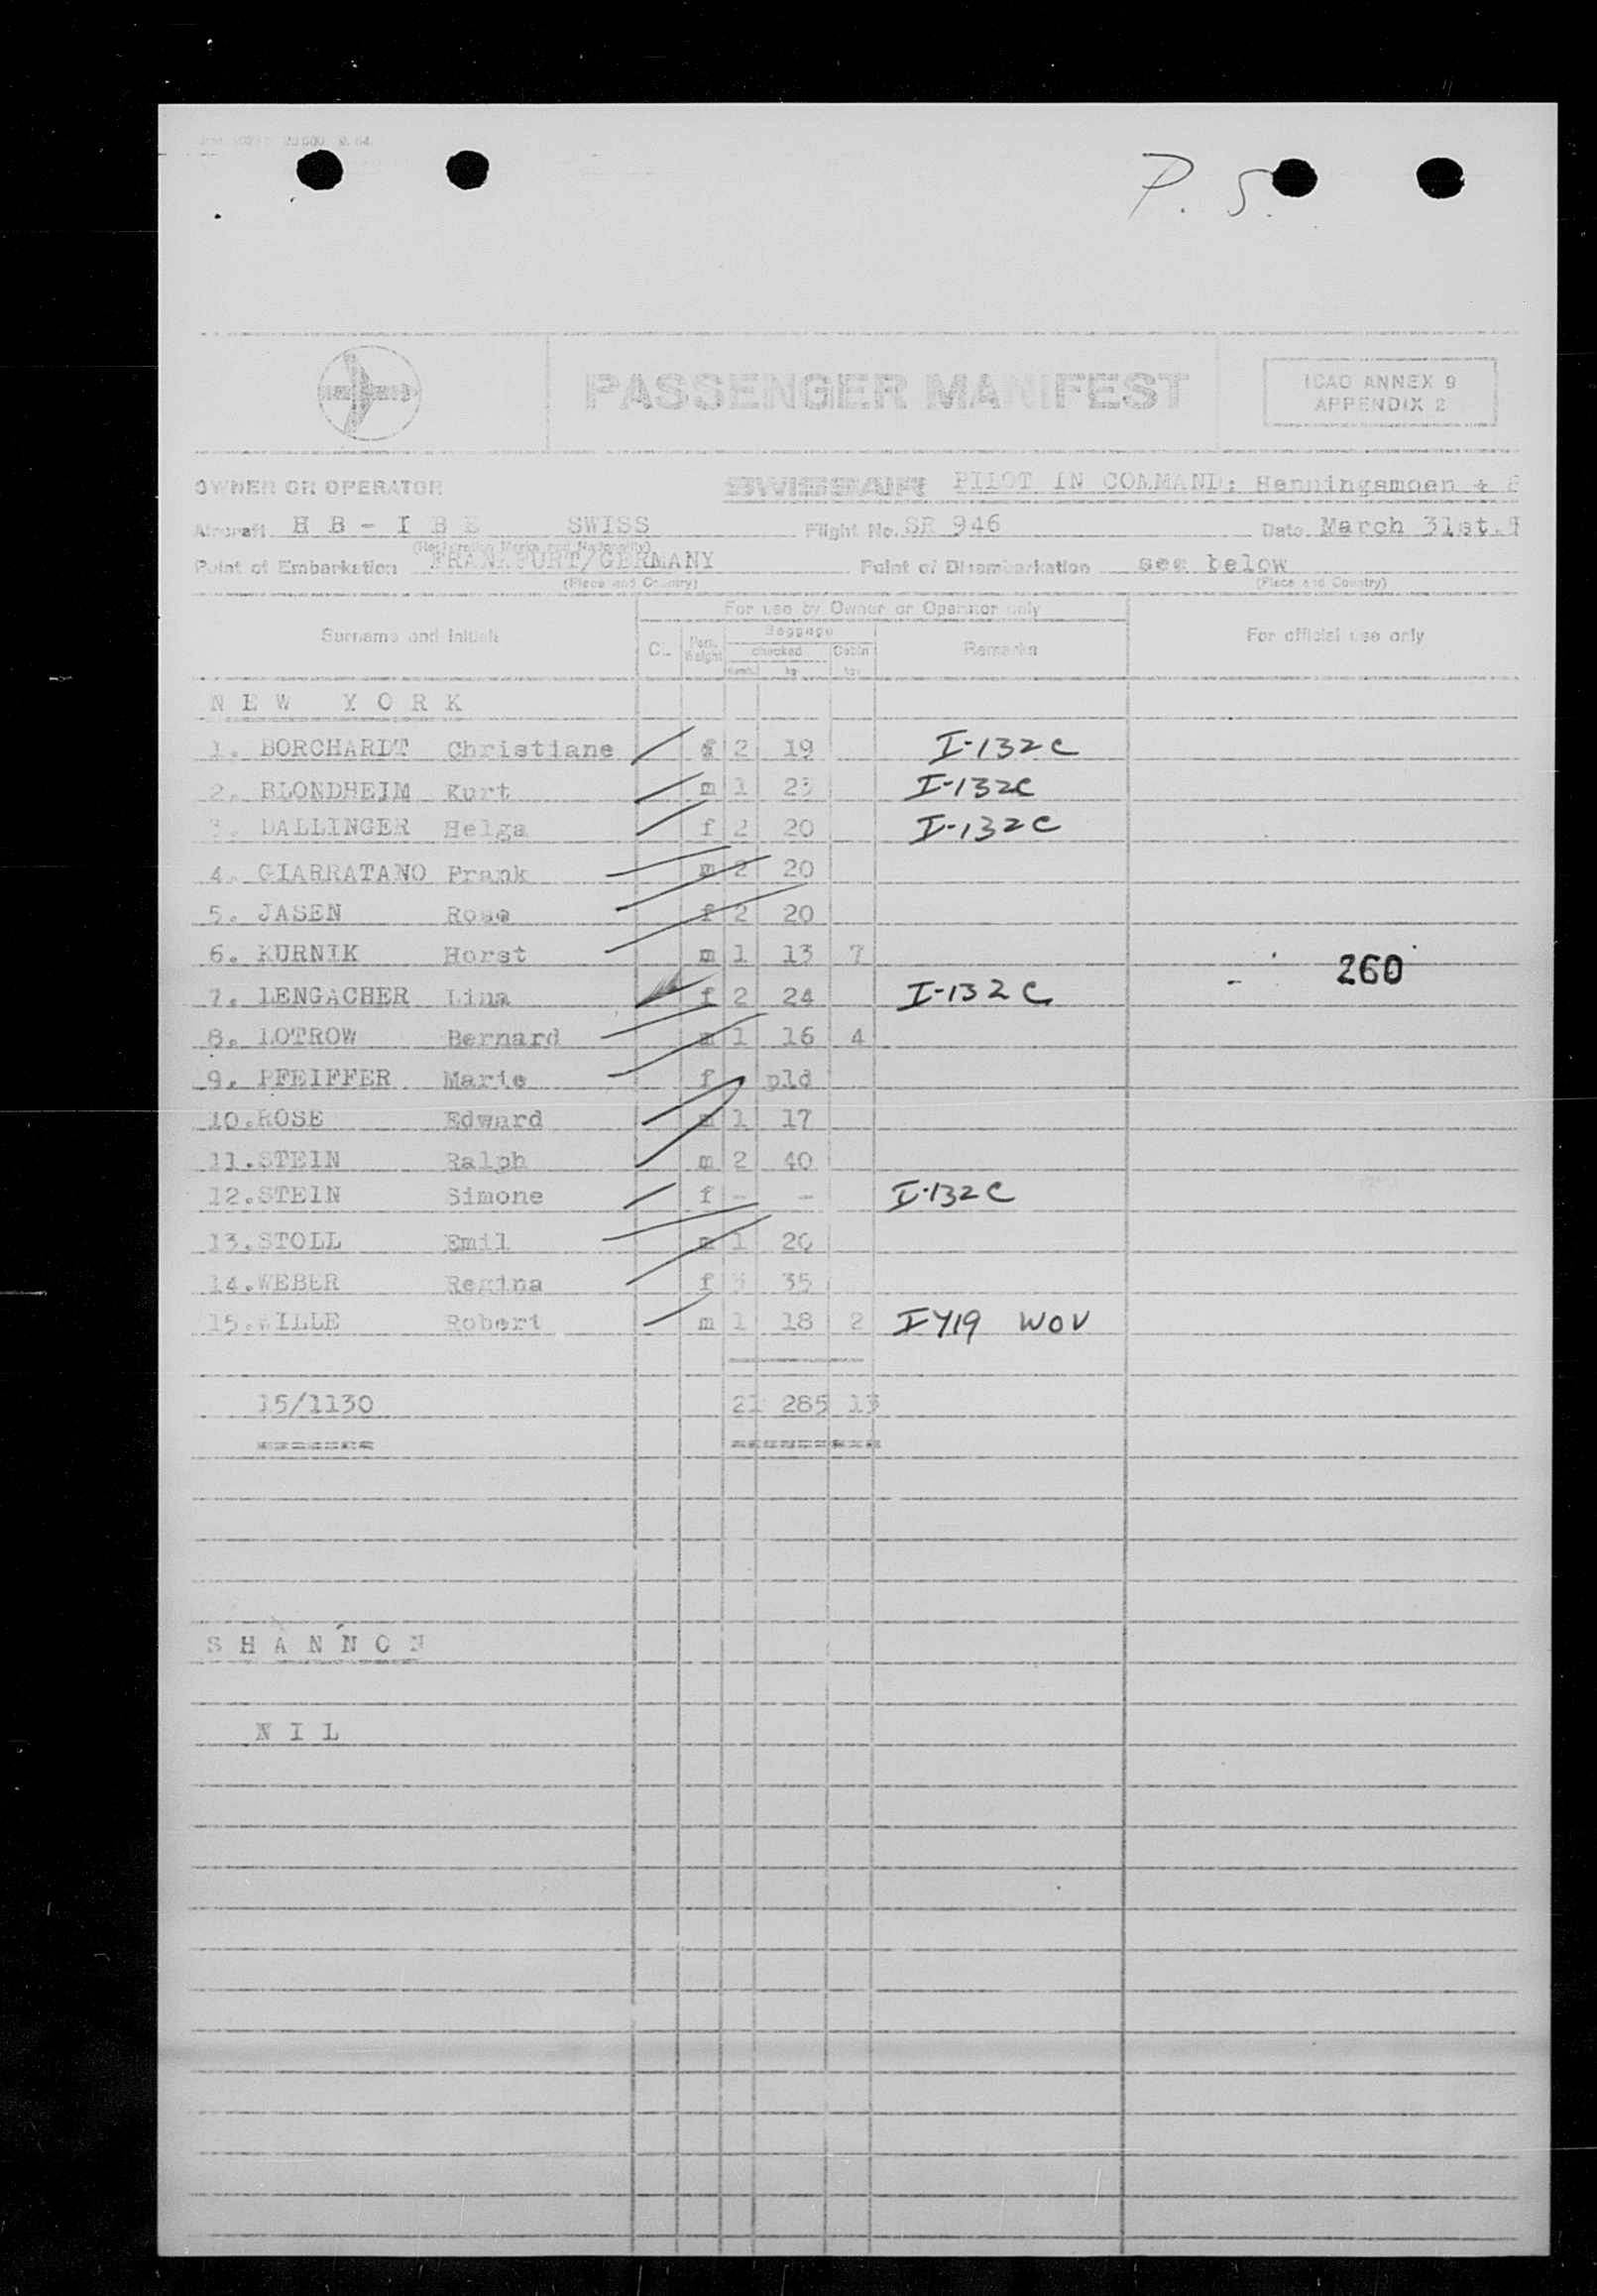 P. S.
PASSENGER MANIFEST
ICAO ANNEX 9
APPENDIX 2
OWNER OR OPERATOR SWISSAIR PILOT IN COMMAND: Henningsmoen +
Aircraft H B - I B E SWISS Flight No. SR 946 Date March 31st.
(Registration Marks and Nationality)
Point of Embarkation FRANKFURT/GERMANY Point of Disembarkation see below
(Place and Country) (Place and Country)
For use by Owner or Operator only
Surname and Initials CL. Pers. Weight Baggage Remarks For official use only
checked Cabin
Numb. kg kg
N E W Y O R K
1. BORCHARDT Christiane f 2 19 I-132C
2. BLONDHEIM Kurt m 1 23 I-132C
3. DALLINGER Helga f 2 20 I-132C
4. GIARRATANO Frank m 2 20
5. JASEN Rose f 2 20
6. KURNIK Horst m 1 13 7
260
7. LENGACHER Lina f 2 24 I-132C
8. LOTROW Bernard m 1 16 4
9. PFEIFFER Marie f pld
10.ROSE Edward m 1 17
11.STEIN Ralph m 2 40
12.STEIN Simone f - - I-132C
13.STOLL Emil m 1 20
14.WEBER Regina f 3 35
15.WILLE Robert m 1 18 2 I Y19 WOV
15/1130 21 285 13
S H A N N O N
N I L